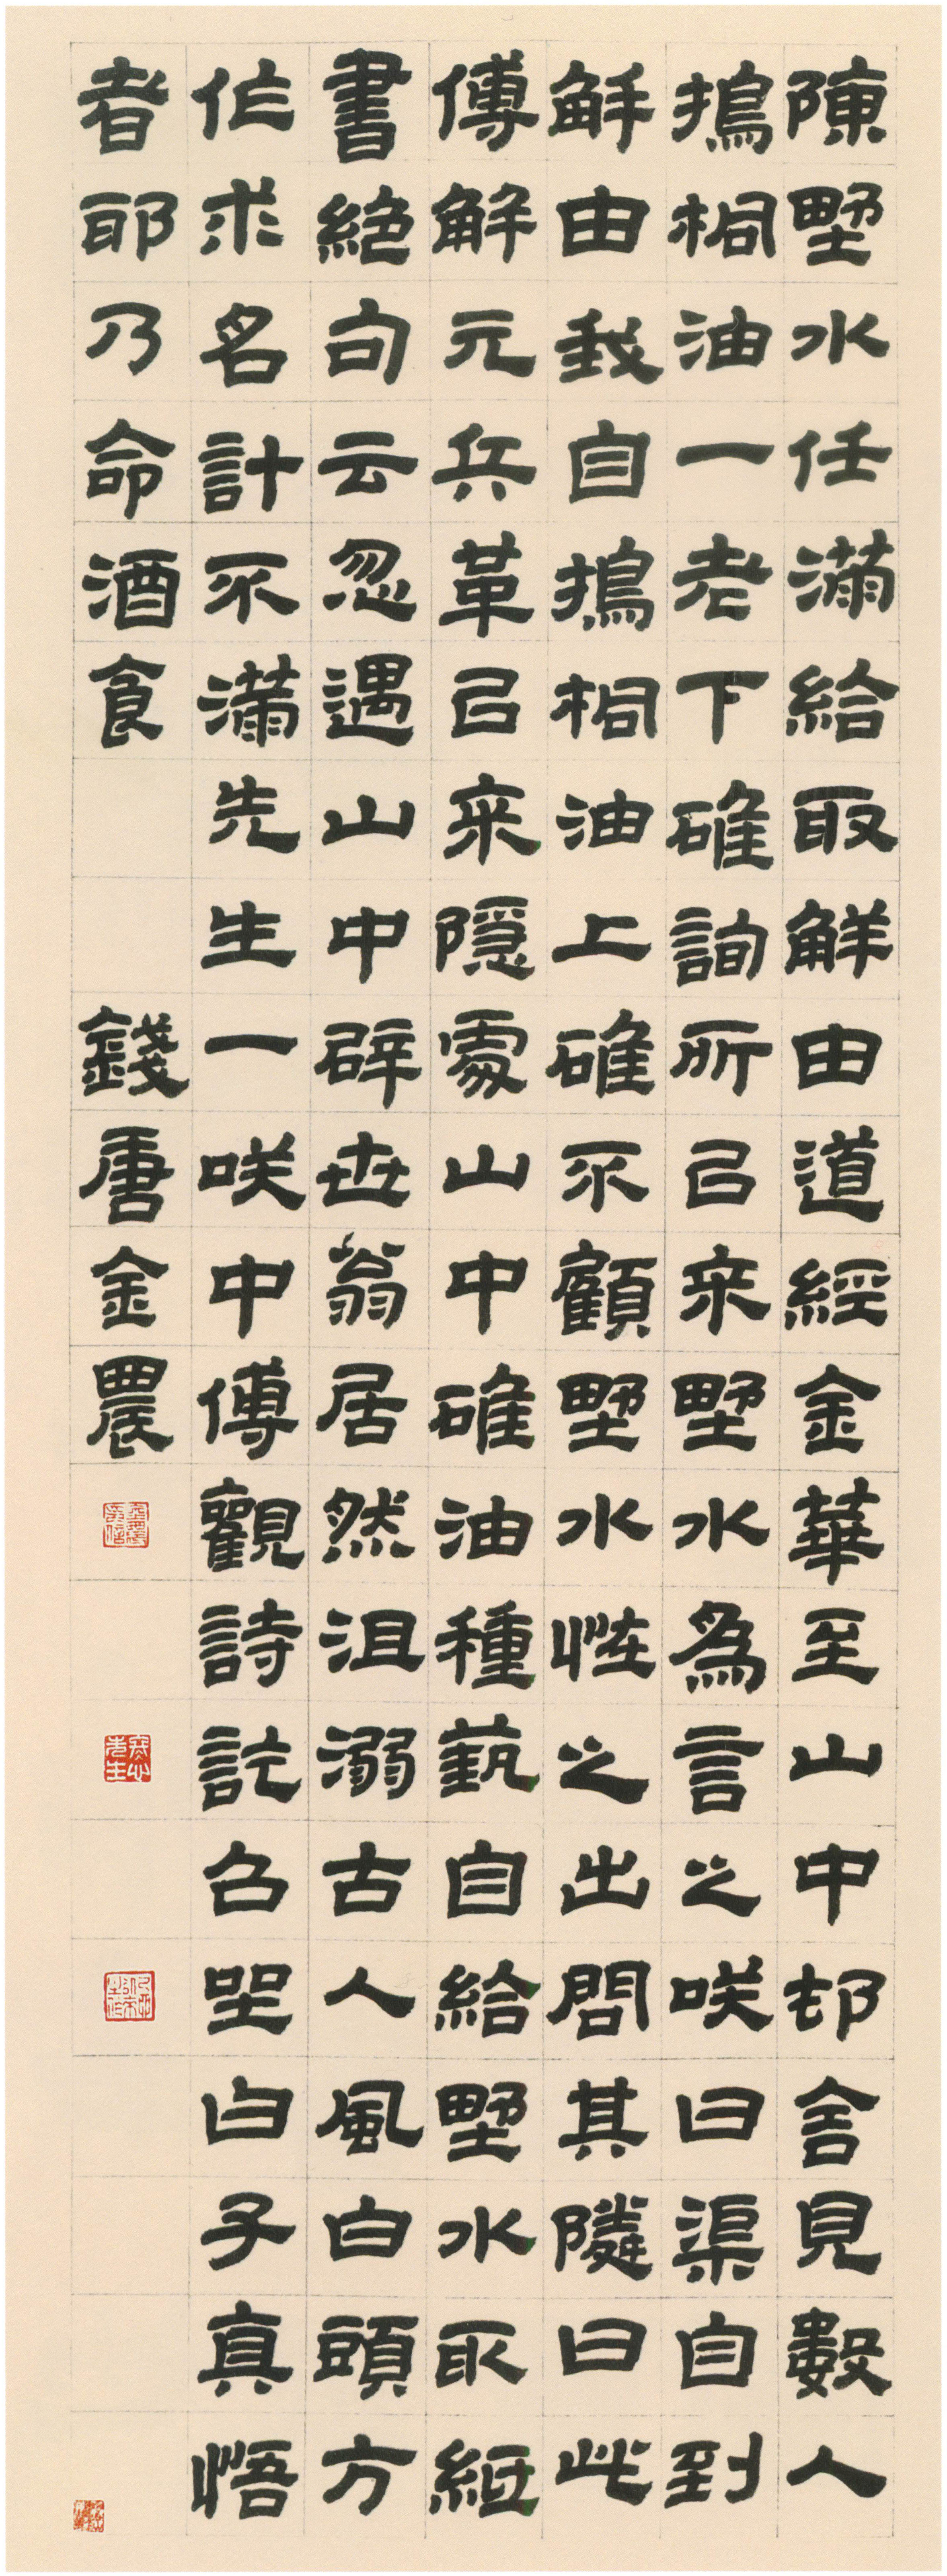 陳野水任滿給取解由道經金華至山中邨舍見數人
搗桐油一老下碓詢所以來野水為言之咲曰渠自到
解由我自搗桐油上碓不顧野水怪之出問其隣曰此
傅解元兵革以來隱處山中碓油種蓺自給野水取紙
書絕句云忽遇山中辟世翁居然沮溺古人風白頭方
作求名計不滿先生一咲中傅觀詩訖召坐白子真悟
者耶乃命酒食 錢唐金農